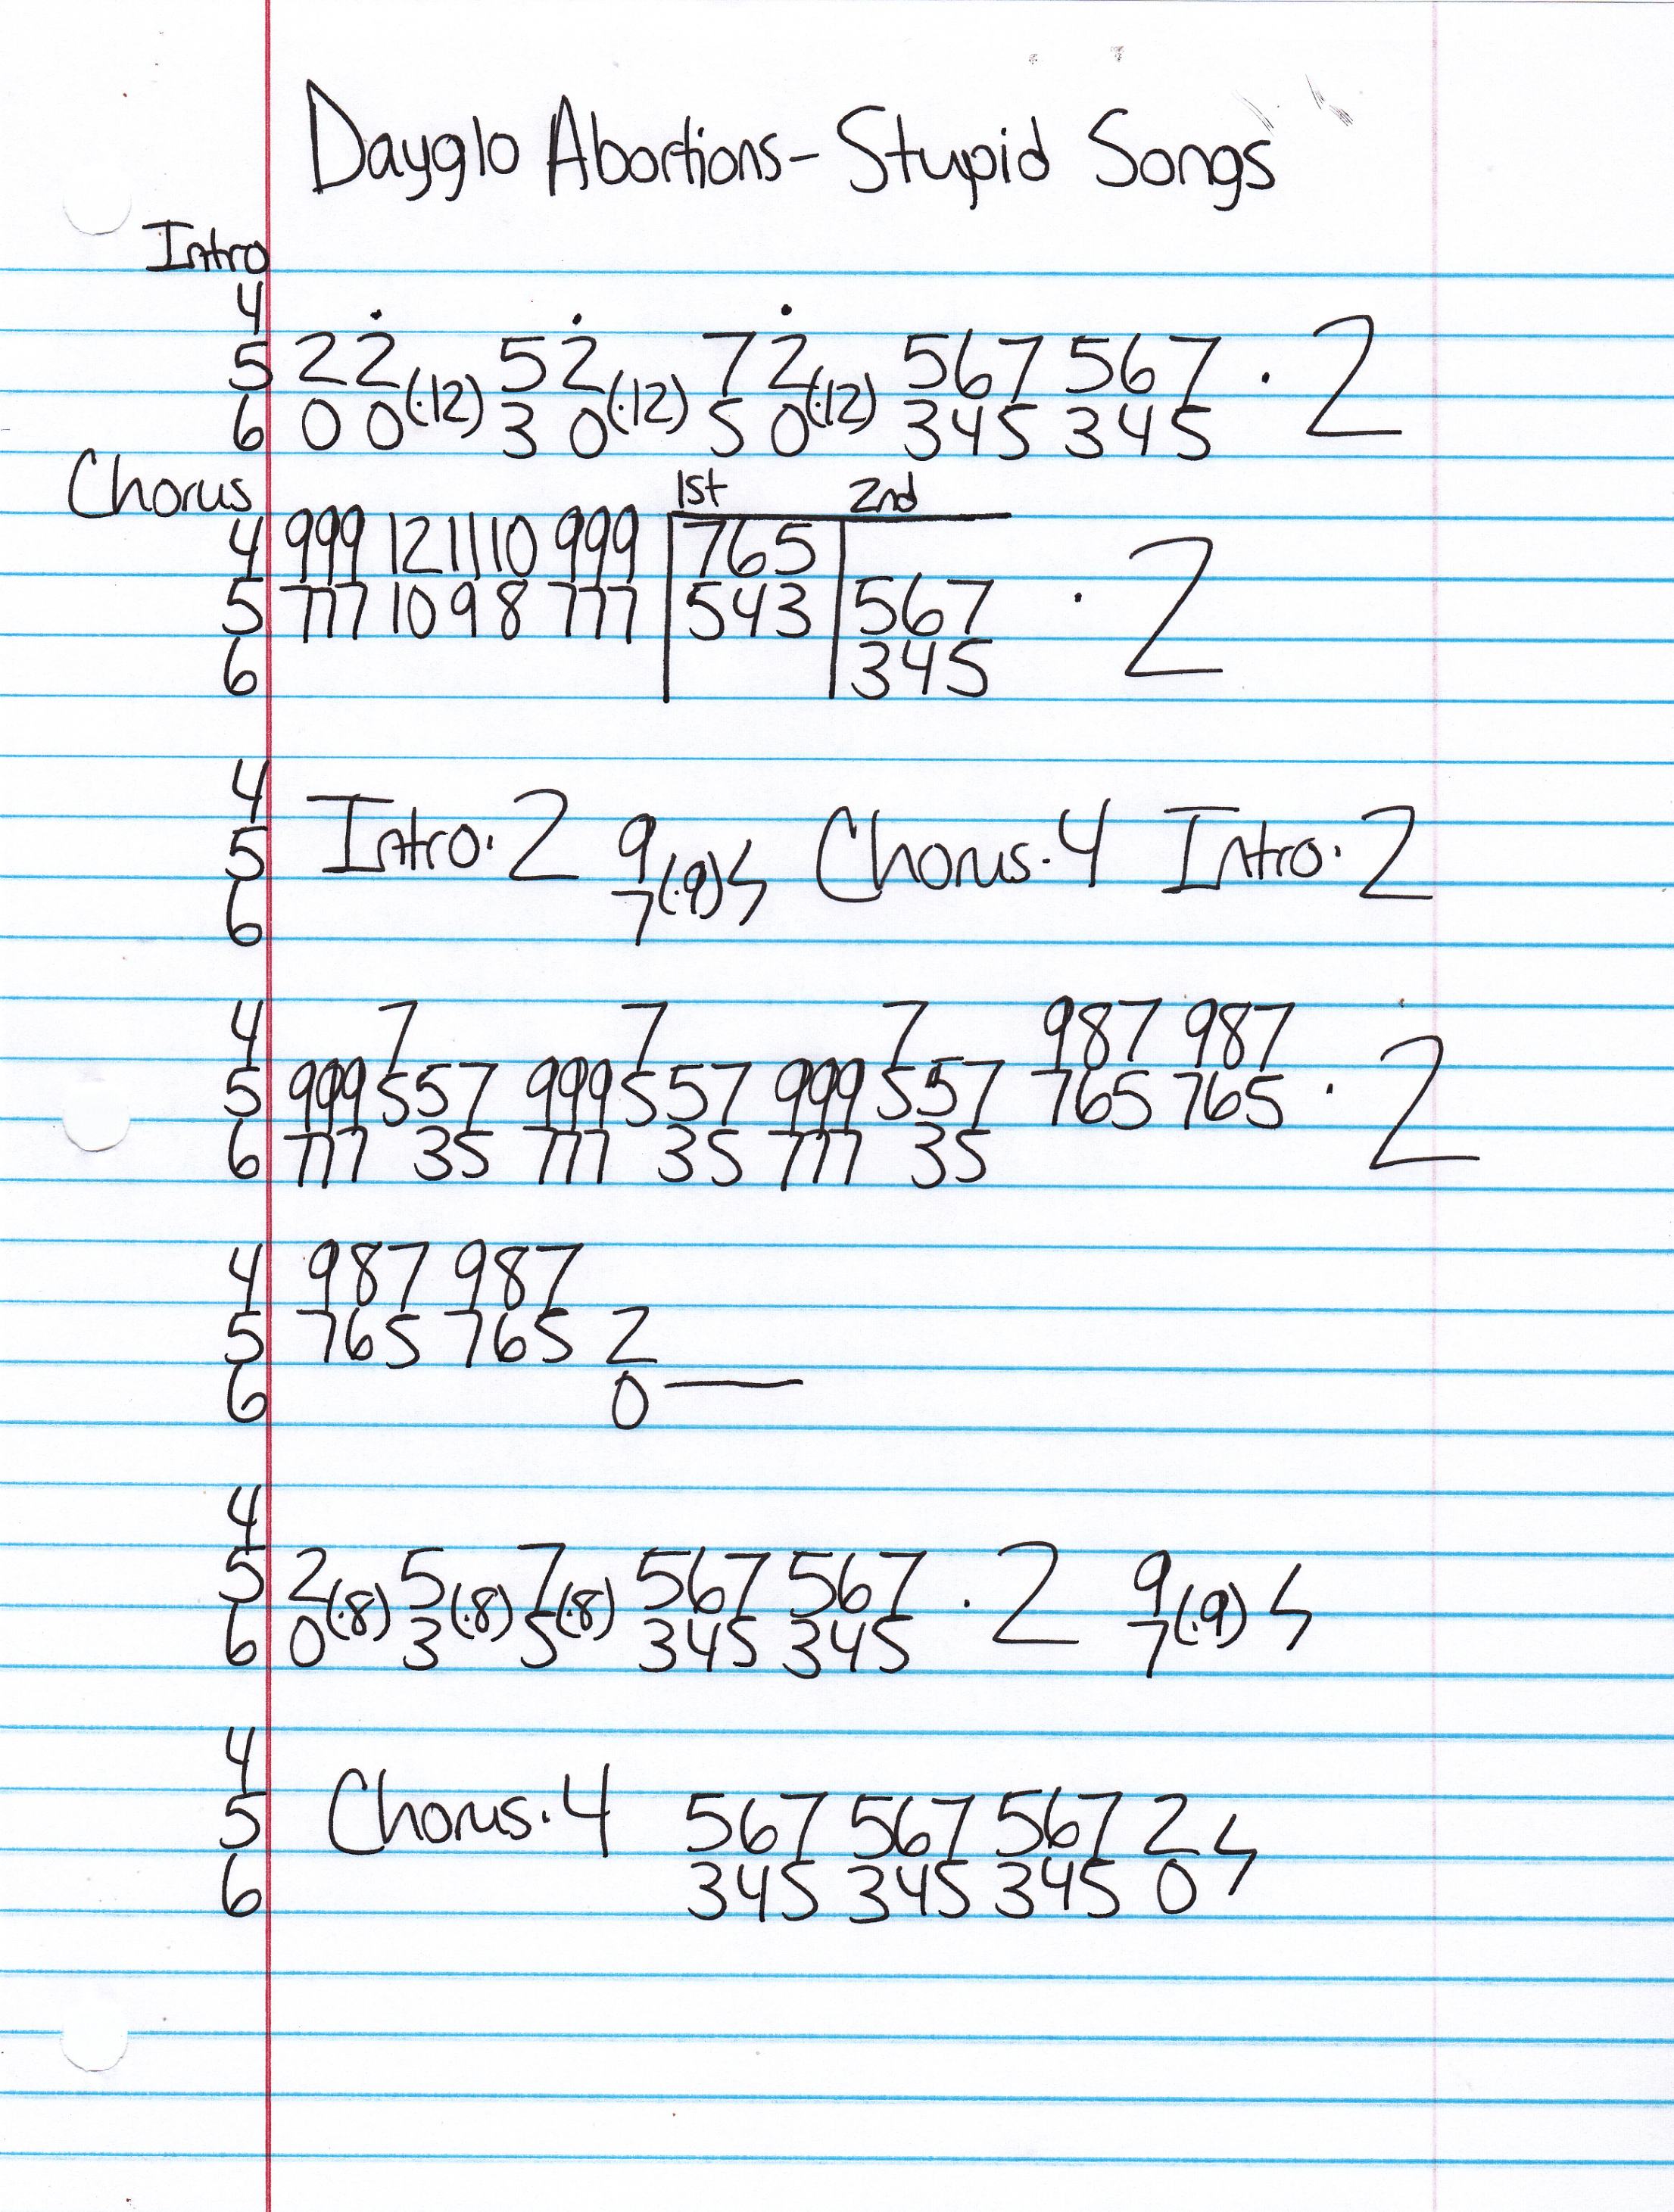 Dayglo Abortions - Stupid Songs
Intro
4
5 2 2 (·12) 5 2 (·12) 7 2 (·12) 567 567 · 2
6 0 0 3 0 5 0 345 345
Chorus 1st 2nd
4 999 12 11 10 999 765
5 777 10 9 8 777 543 567 · 2
6 345
4
5 Intro · 2 9 (·9) ϟ Chorus · 4 Intro · 2
6 7
4 7 7 7 987 987
5 999557 999557 999557 765 765 · 2
6 777 35 777 35 777 35
4 987 987
5 765 765 2
6 0 —
4
5 2 (·8) 5 (·8) 7 (·8) 567 567 · 2 9 (·9) ϟ
6 0 3 5 345 345 7
4
5 Chorus · 4 567 567 567 2 ϟ
6 345 345 345 0